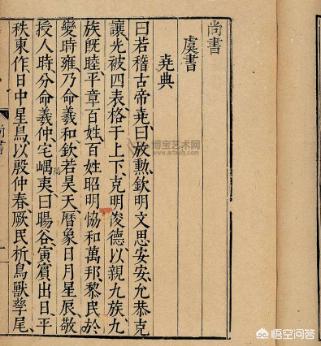 尚書
虞書
堯典
曰若稽古帝堯曰放勳欽明文思安安允恭克
讓光被四表格于上下克明俊德以親九族九
族既睦平章百姓百姓昭明協和萬邦黎民於
變時雍乃命羲和欽若昊天曆象日月星辰敬
授人時分命羲仲宅嵎夷曰暘谷寅賓出日平
秩東作日中星鳥以殷仲春厥民析鳥獸孳尾
博宝艺术网
悟空问答